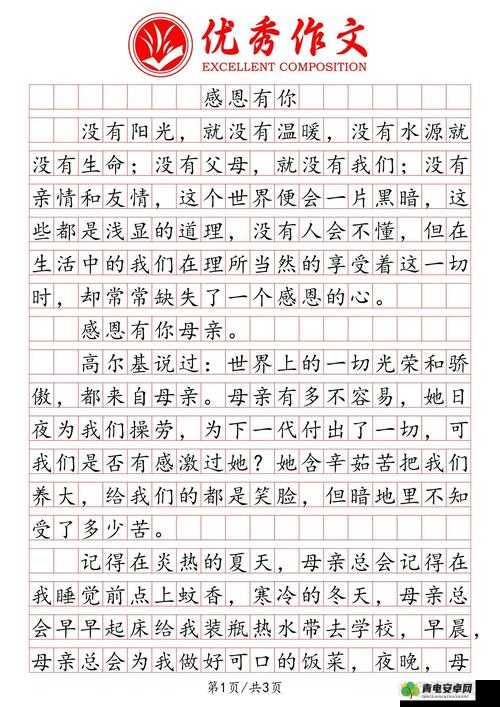 优秀作文
EXCELLENT COMPOSITION
感恩有你
没有阳光，就没有温暖，没有水源就
没有生命；没有父母，就没有我们；没有
亲情和友情，这个世界便会一片黑暗，这
些都是浅显的道理，没有人会不懂，但在
生活中的我们在理所当然的享受着这一切
时，却常常缺失了一个感恩的心。
感恩有你母亲。
高尔基说过：世界上的一切光荣和骄
傲，都来自母亲。母亲有多不容易，她日
夜为我们操劳，为下一代付出了一切，可
我们是否有感激过她？她含辛茹苦把我们
养大，给我们的都是笑脸，但暗地里不知
受了多少苦。
记得在炎热的夏天，母亲总会记得在
我睡觉前点上蚊香，寒冷的冬天，母亲总
会早早起床给我装瓶热水带去学校，早晨，
母亲总会为我做好可口的饭菜，夜晚，母
第1页/共3页
青电安卓网